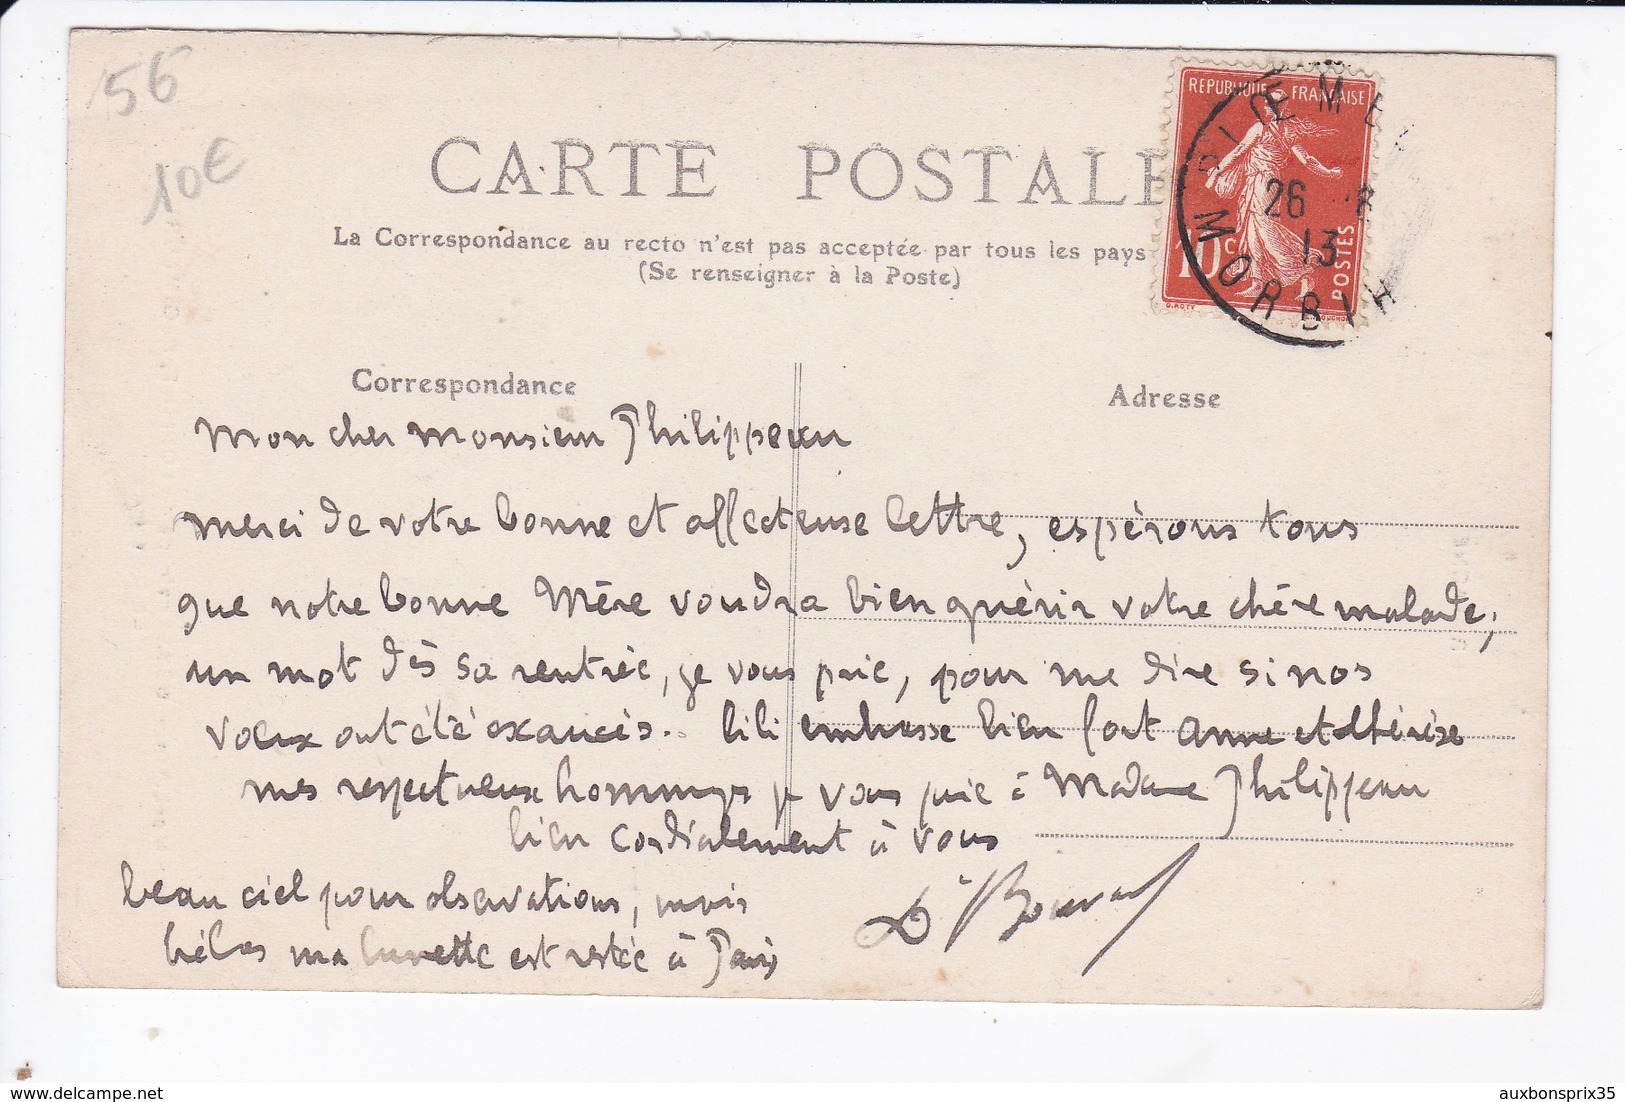 56
10€
CARTE POSTALE
La Correspondance au recto n'est pas acceptée par tous les pays
(Se renseigner à la Poste)
REPUBLIQUE FRANÇAISE
10c POSTES
26
13
MORBIH
Correspondance
Adresse
Mon cher Monsieur Philippeau
merci de votre bonne et affectueuse lettre, espérons tous
que notre bonne Mère voudra bien guérir votre chère malade,
un mot dès sa rentrée, je vous prie, pour me dire si nos
voeux ont été exaucés.. Lili embrasse bien fort Anne et Thérèse
mes respectueux hommages je vous prie à Madame Philippeau
bien cordialement à vous
beau ciel pour observations, mais
hélas ma lunette est restée à Paris
Dr
delcampe.net
auxbonsprix35